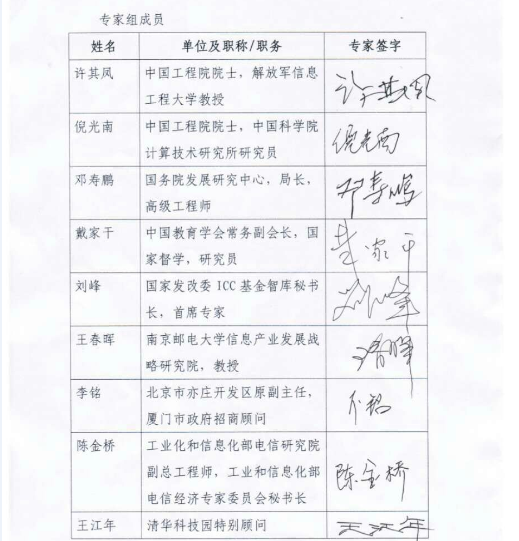 专家组成员
姓名 单位及职称/职务 专家签字
许其凤 中国工程院院士，解放军信息 许其凤
工程大学教授
倪光南 中国工程院院士，中国科学院 倪光南
计算技术研究所研究员
邓寿鹏 国务院发展研究中心，局长， 邓寿鹏
高级工程师
戴家干 中国教育学会常务副会长，国 戴家干
家督学，研究员
刘峰 国家发改委 ICC 基金智库秘书 刘峰
长，首席专家
王春晖 南京邮电大学信息产业发展战 王春晖
略研究院，教授
李铭 北京市亦庄开发区原副主任， 李铭
厦门市政府招商顾问
陈金桥 工业化和信息化部电信研究院 陈金桥
副总工程师，工业和信息化部
电信经济专家委员会秘书长
王江年 清华科技园特别顾问 王江年